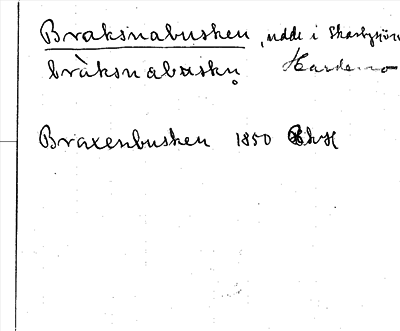 Braksnabusken, udde i Skarbysjön
bràksnabuskn̥ Hardemo
Braxenbusken 1850